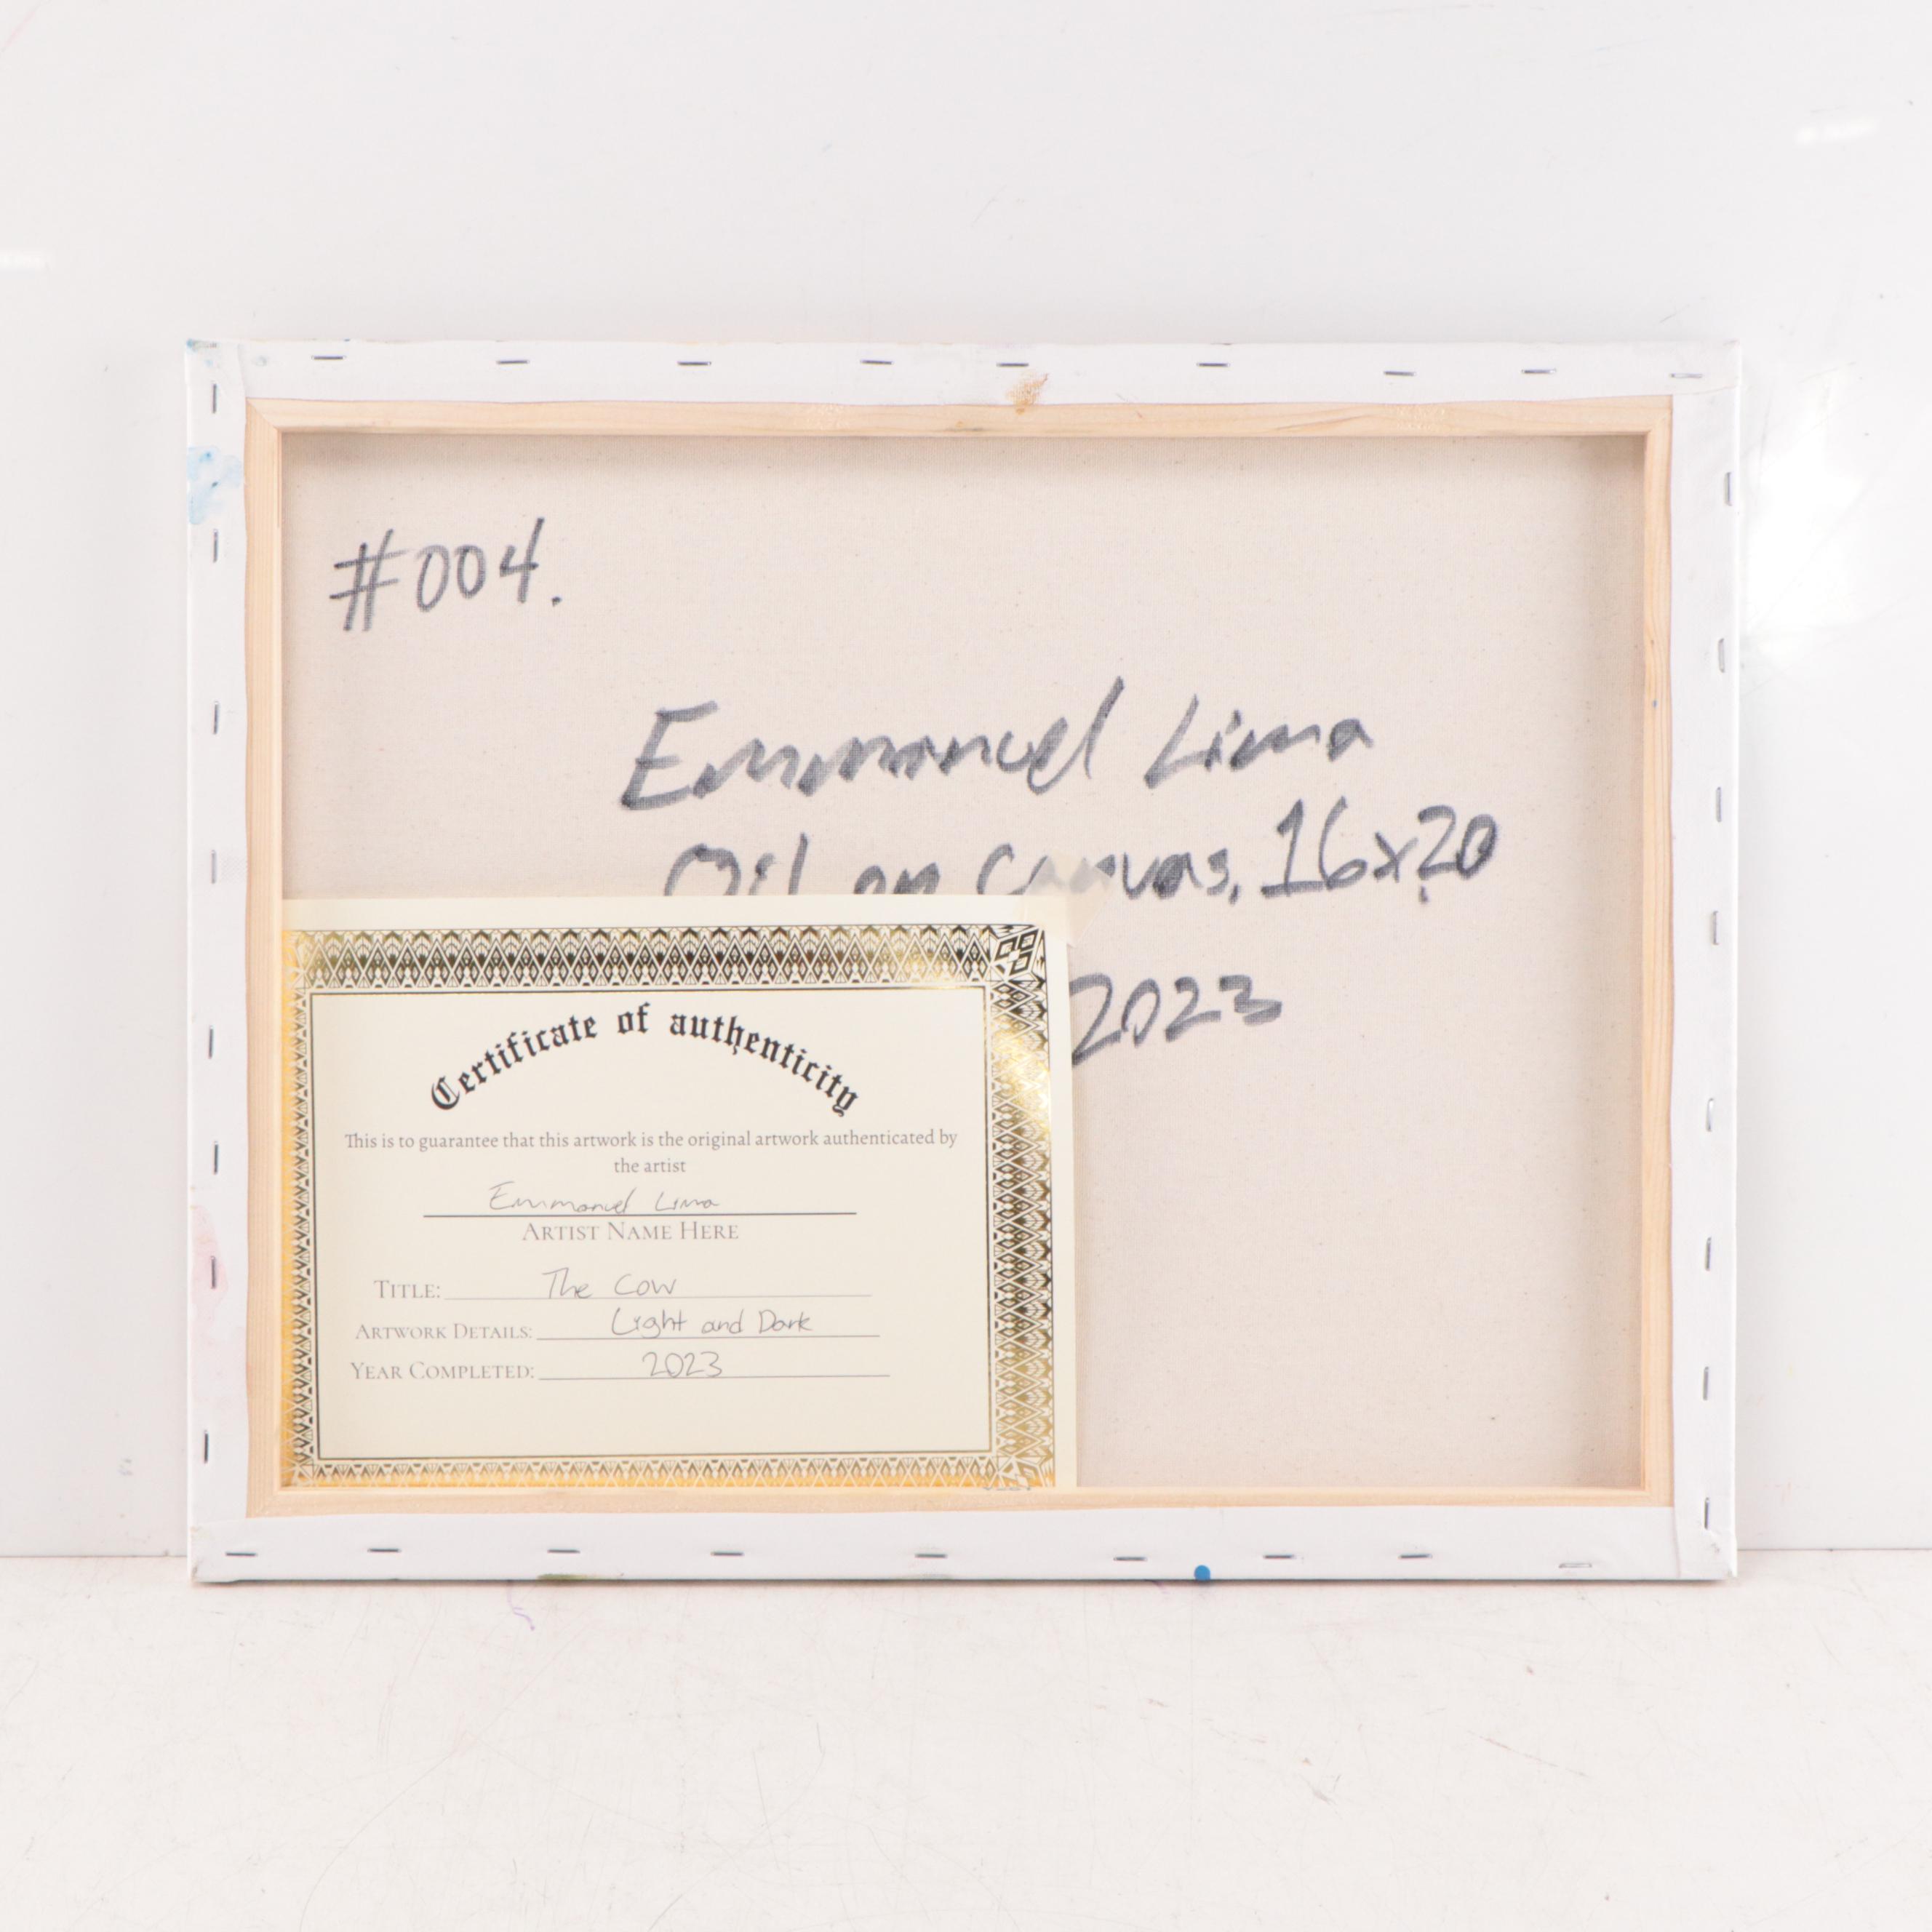 #004.
Emmanuel Lima
Oil on Canvas, 16x20
2023
Certificate of authenticity
This is to guarantee that this artwork is the original artwork authenticated by
the artist
Emmanuel Lima
ARTIST NAME HERE
TITLE: The Cow
ARTWORK DETAILS: Light and Dark
YEAR COMPLETED: 2023